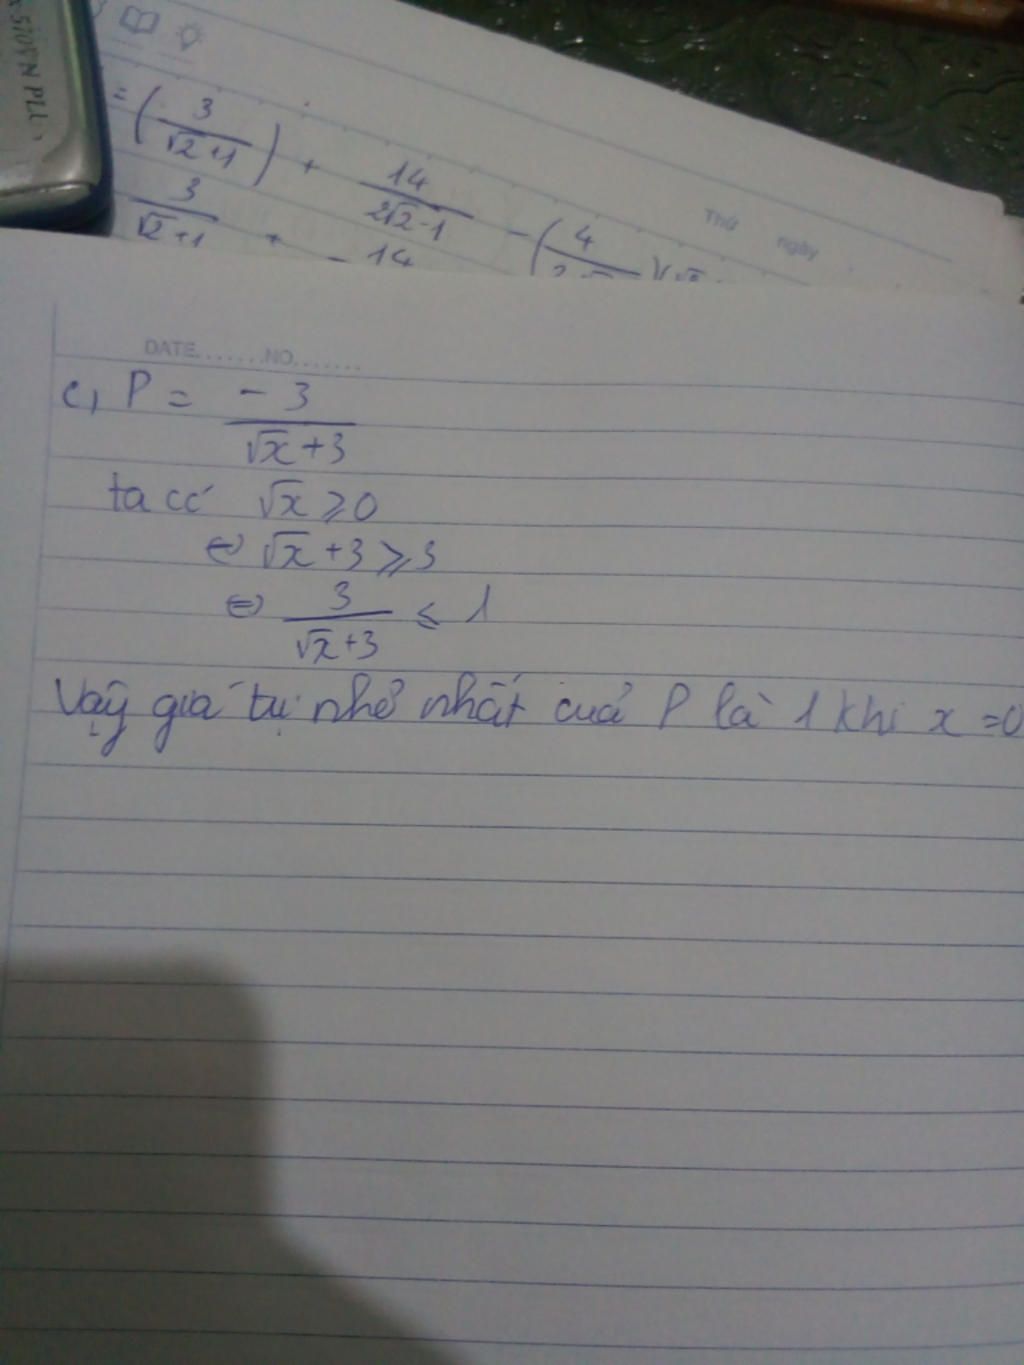 = (3/(√2+1)) + 14/(2√2-1) - (4/
3/(√2+1) + 14
Thứ ngày
DATE.......NO.......
c, P = -3/(√x+3)
ta có √x ≥ 0
⇔ √x + 3 ≥ 3
⇔ 3/(√x+3) ≤ 1
Vậy giá trị nhỏ nhất cuả P là 1 khi x = 0